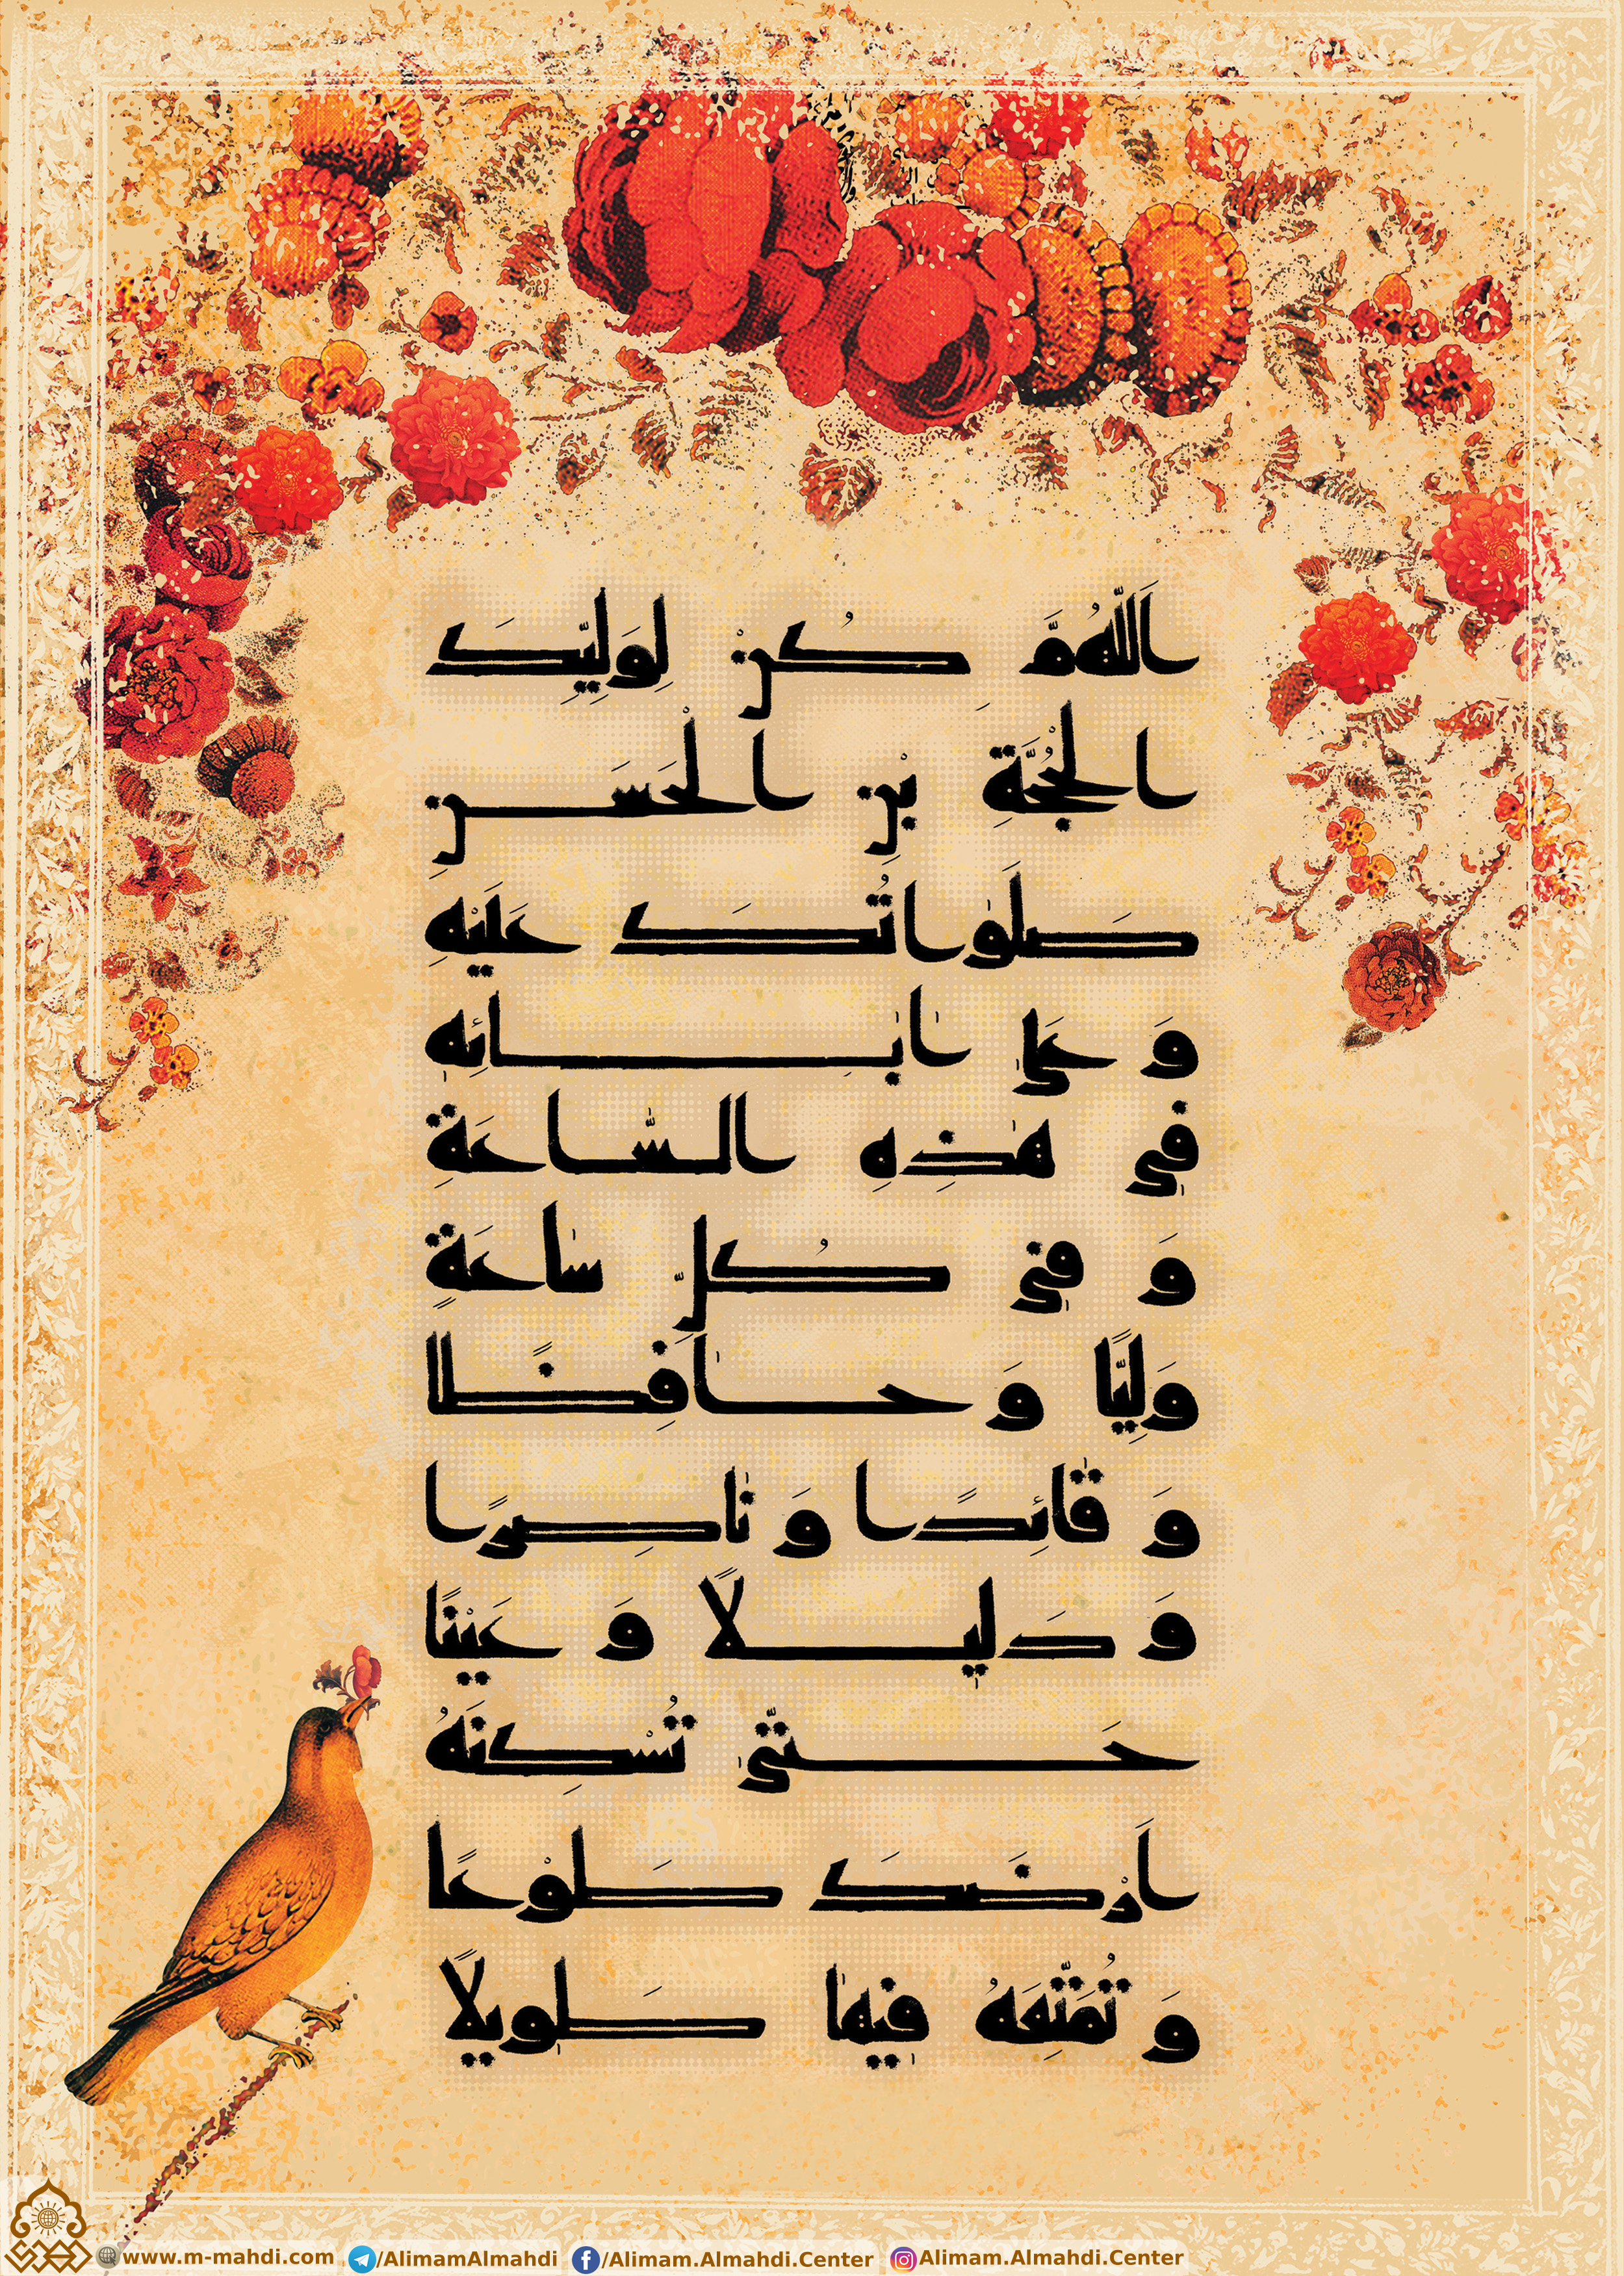 اَللّٰهُمَّ كُنْ لِوَلِيِّكَ
الْحُجَّةِ بْنِ الْحَسَنِ
صَلَوٰاتُكَ عَلَيْهِ
وَ عَلىٰ اٰبٰائِهِ
في هٰذِهِ السّٰاعَةِ
وَ في كُلِّ سٰاعَةٍ
وَلِيًّا وَ حٰافِظًا
وَ قٰائِدًا وَ نٰاصِرًا
وَ دَليلًا وَ عَيْنًا
حَتّىٰ تُسْكِنَهُ
اَرْضَكَ طَوْعًا
وَ تُمَتِّعَهُ فيهٰا طَويلًا
www.m-mahdi.com /AlimamAlmahdi /Alimam.Almahdi.Center Alimam.Almahdi.Center